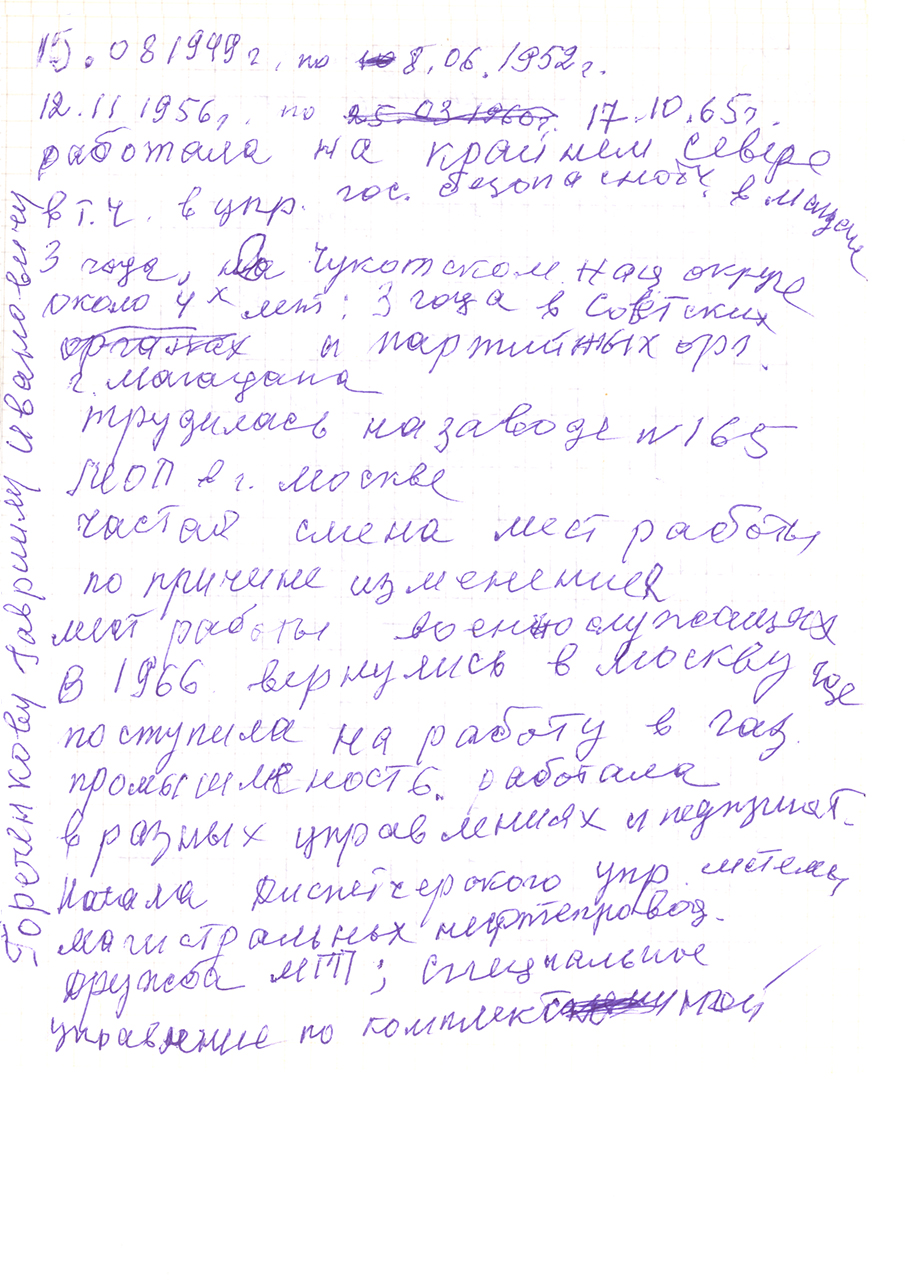 15.08 1949г. по 8.06.1952г.
12.11 1956г. по 25.03 1960г. 17.10.65г.
работала на крайнем севере
в т.ч. в упр. гос. безопасности в Магадане
3 года, на Чукотском нац округе
около 4х лет; 3 года в Советских
органах и партийных орг.
г. Магадана
трудилась на заводе №165
МОП в г. Москве
частая смена мест работы
по причине изменения
мест работы военнослужащих
В 1966 вернулись в Москву где
поступила на работу в газ.
промышленность. работала
в разных управлениях и
начала Диспетчерского упр. системы
магистральных нефтепровод.
Дружба МГП; Специальное
управление по комплектной
Гореченкову Гавриилу Ивановичу